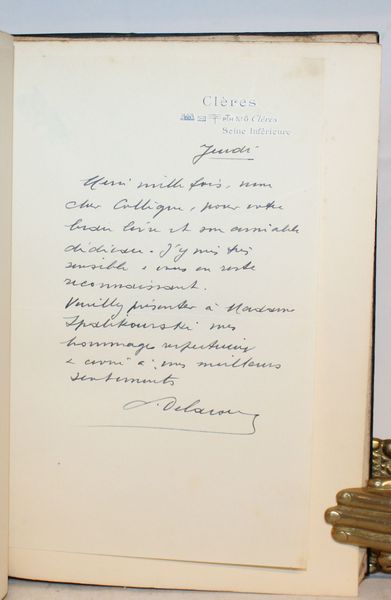 Clères
Tél. N° 6 Clères
Seine Inférieure
Jeudi
Merci mille fois, mon
cher Collègue, pour votre
beau livre et son aimable
dédicace. J'y suis très
sensible & vous en reste
reconnaissant.
Veuillez présenter à Madame
Spalikowski mes
hommages respectueux
& croire à mes meilleurs
sentiments
J. Delacour